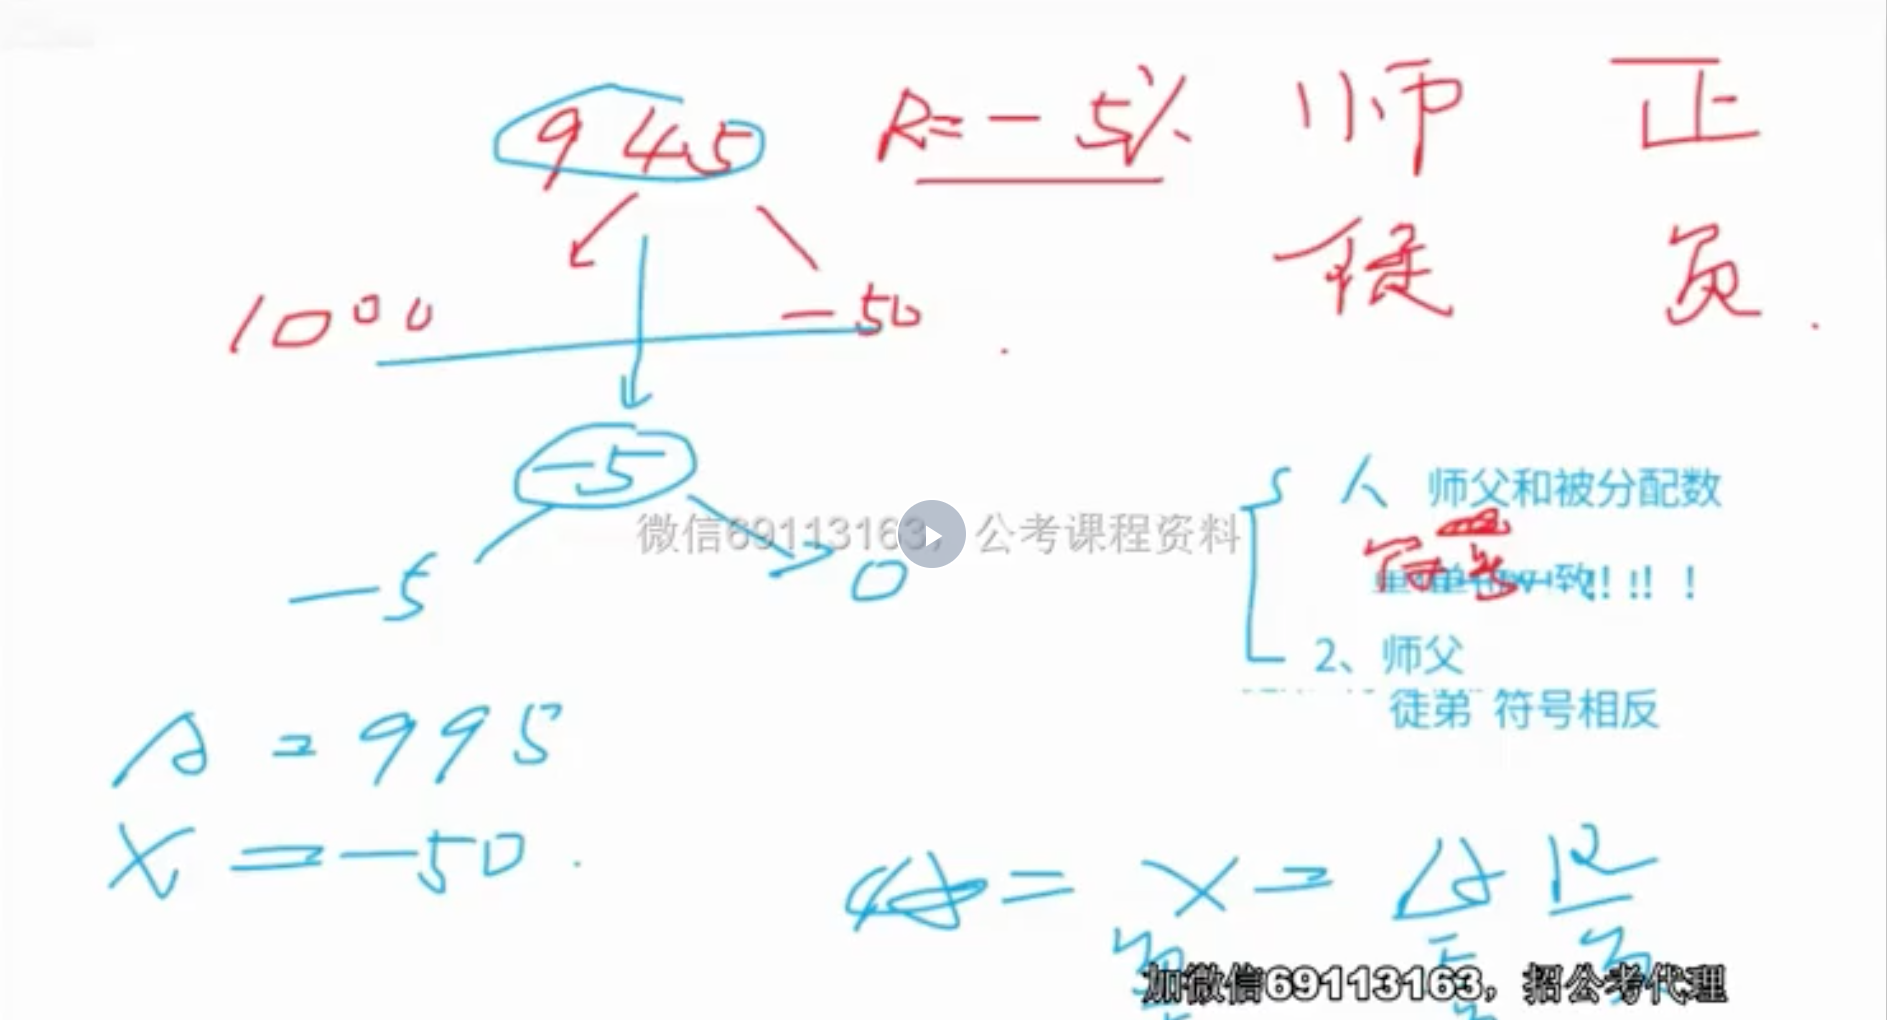 945 R=-5% 师 正
徒 负
1000 -50
-5
-5 0
微信69113163, 公考课程资料
1、师父和被分配数
符号 一致!!!!
2、师父
徒弟 符号相反
A=995
X=-50
= X = A R
加微信69113163，招公考代理